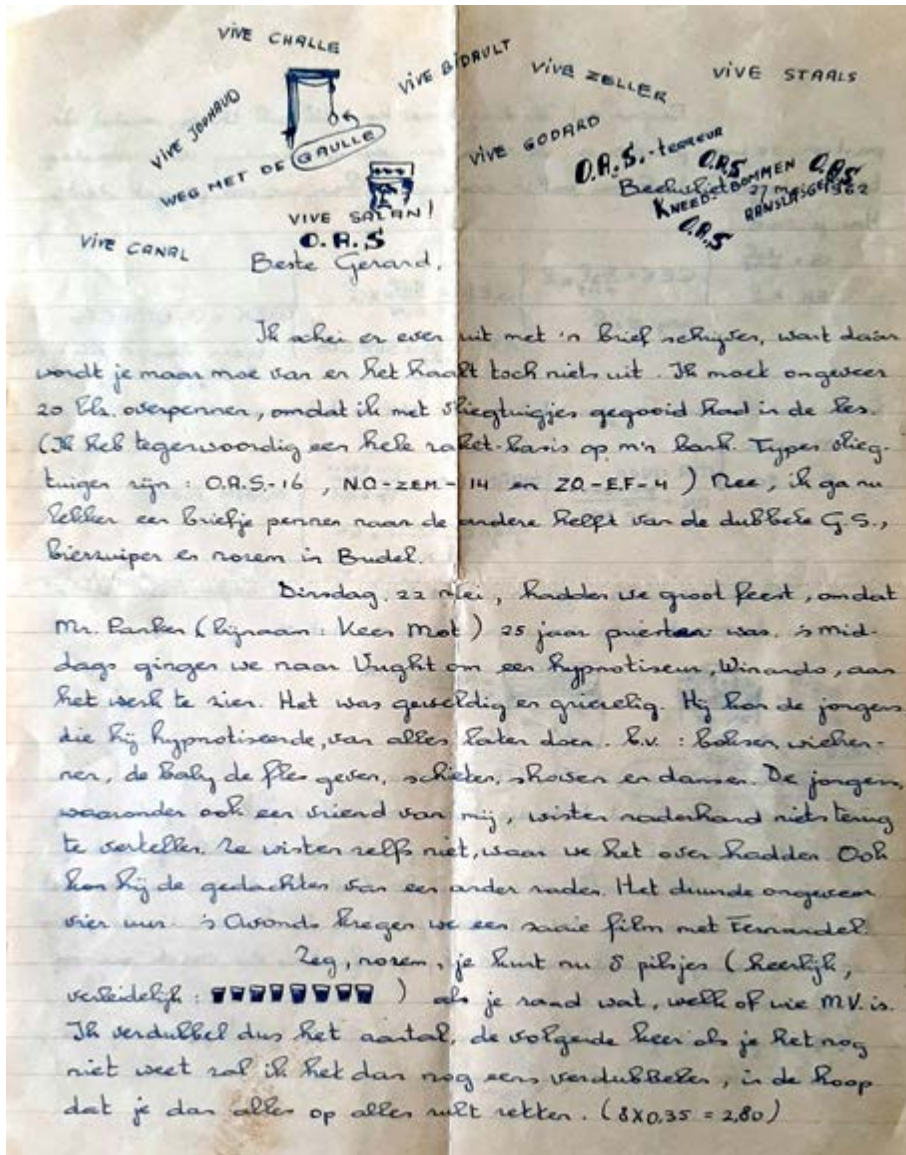 VIVE CHALLE
VIVE BIDAULT
VIVE ZELLER
VIVE STAALS
VIVE JOUHAUD
VIVE GODARD
WEG MET DE GAULLE
O.A.S.-terreur
O.A.S
O.A.S
Beekvliet
KNEED-BOMMEN
27 mei 1962
AANSLAGEN
O.A.S
VIVE SALAN!
O.A.S
VIVE CANAL
Beste Gerard,
Ik schei er even uit met 'n brief schrijven, want daar
wordt je maar moe van en het haalt toch niets uit. Ik moet ongeveer
20 blz. overpennen, omdat ik met vliegtuigjes gegooid had in de les.
(Ik heb tegenwoordig een hele raket-basis op m'n bank. Types vlieg-
tuigen zijn: O.A.S.-16, N.O-ZEM-14 en ZO-E.F-4) Nee, ik ga nu
lekker een briefje pennen naar de andere helft van de dubbele G.S.,
bierzuiper en nozem in Budel.
Dinsdag, 22 mei, hadden we groot feest, omdat
Mr. Panken (bijnaam: Kees Mot) 25 jaar priester was. 's mid-
dags gingen we naar Vught om een hypnotiseur, Winando, aan
het werk te zien. Het was geweldig en griezelig. Hij kon de jongens
die hij hypnotiseerde, van alles laten doen. b.v.: boksen,
de baby de fles geven, schieten, showen en dansen. De jongens,
waaronder ook een vriend van mij, wisten naderhand niets terug
te vertellen. Ze wisten zelfs niet, waar we het over hadden. Ook
kon hij de gedachten van een ander raden. Het duurde ongeveer
vier uur. 's Avonds kregen we een saaie film met Fernandel.
Zeg, nozem, je kunt nu 8 pilsjes (heerlijk,
verleidelijk: ) als je raad wat, welk of wie M.V. is.
Ik verdubbel dus het aantal, de volgende keer als je het nog
niet weet zal ik het dan nog eens verdubbelen, in de hoop
dat je dan alles op alles zult zetten. (8X0,35 = 2,80)